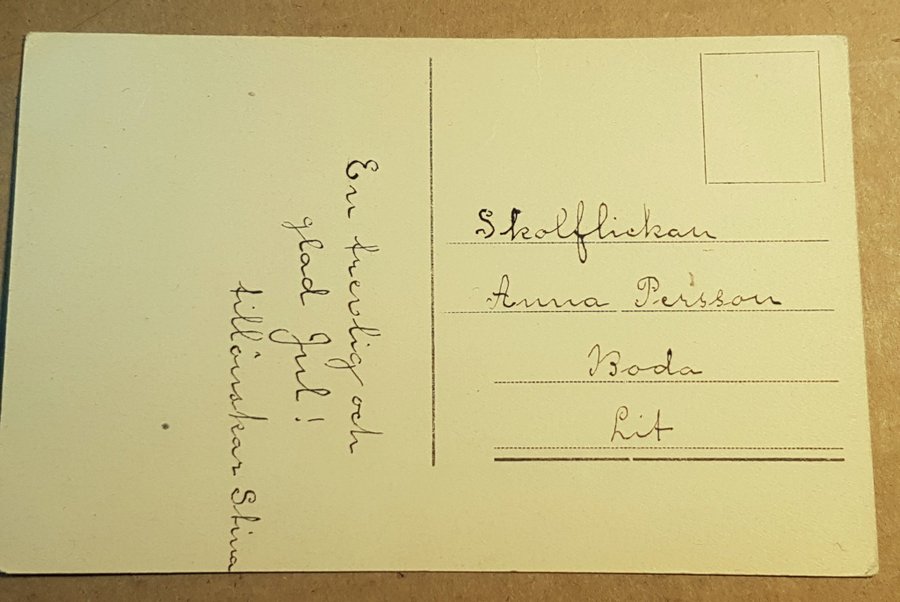 En trevlig och
glad Jul!
tillönskar Stina
Skolflickan
Anna Persson
Boda
Lit